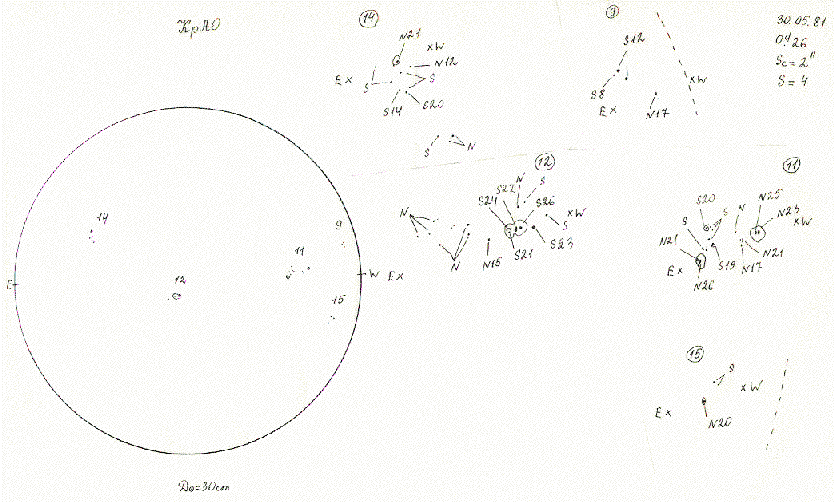 КрАО
30.05.81
04:26
Sc = 2"
S = 4
14
N21
xW
N12
E x
S
S
S14
S20
S
N
9
S12
S8
xW
E x
N17
12
N
S
S22
S24
S26
xW
S
S23
S21
N15
N
N
E x
11
N25
N23
xW
S20
S
N
S
N21
E x
S19
N21
N17
N26
15
S
xW
E x
N20
14
9
11
12
15
E
W
D₀=30cm